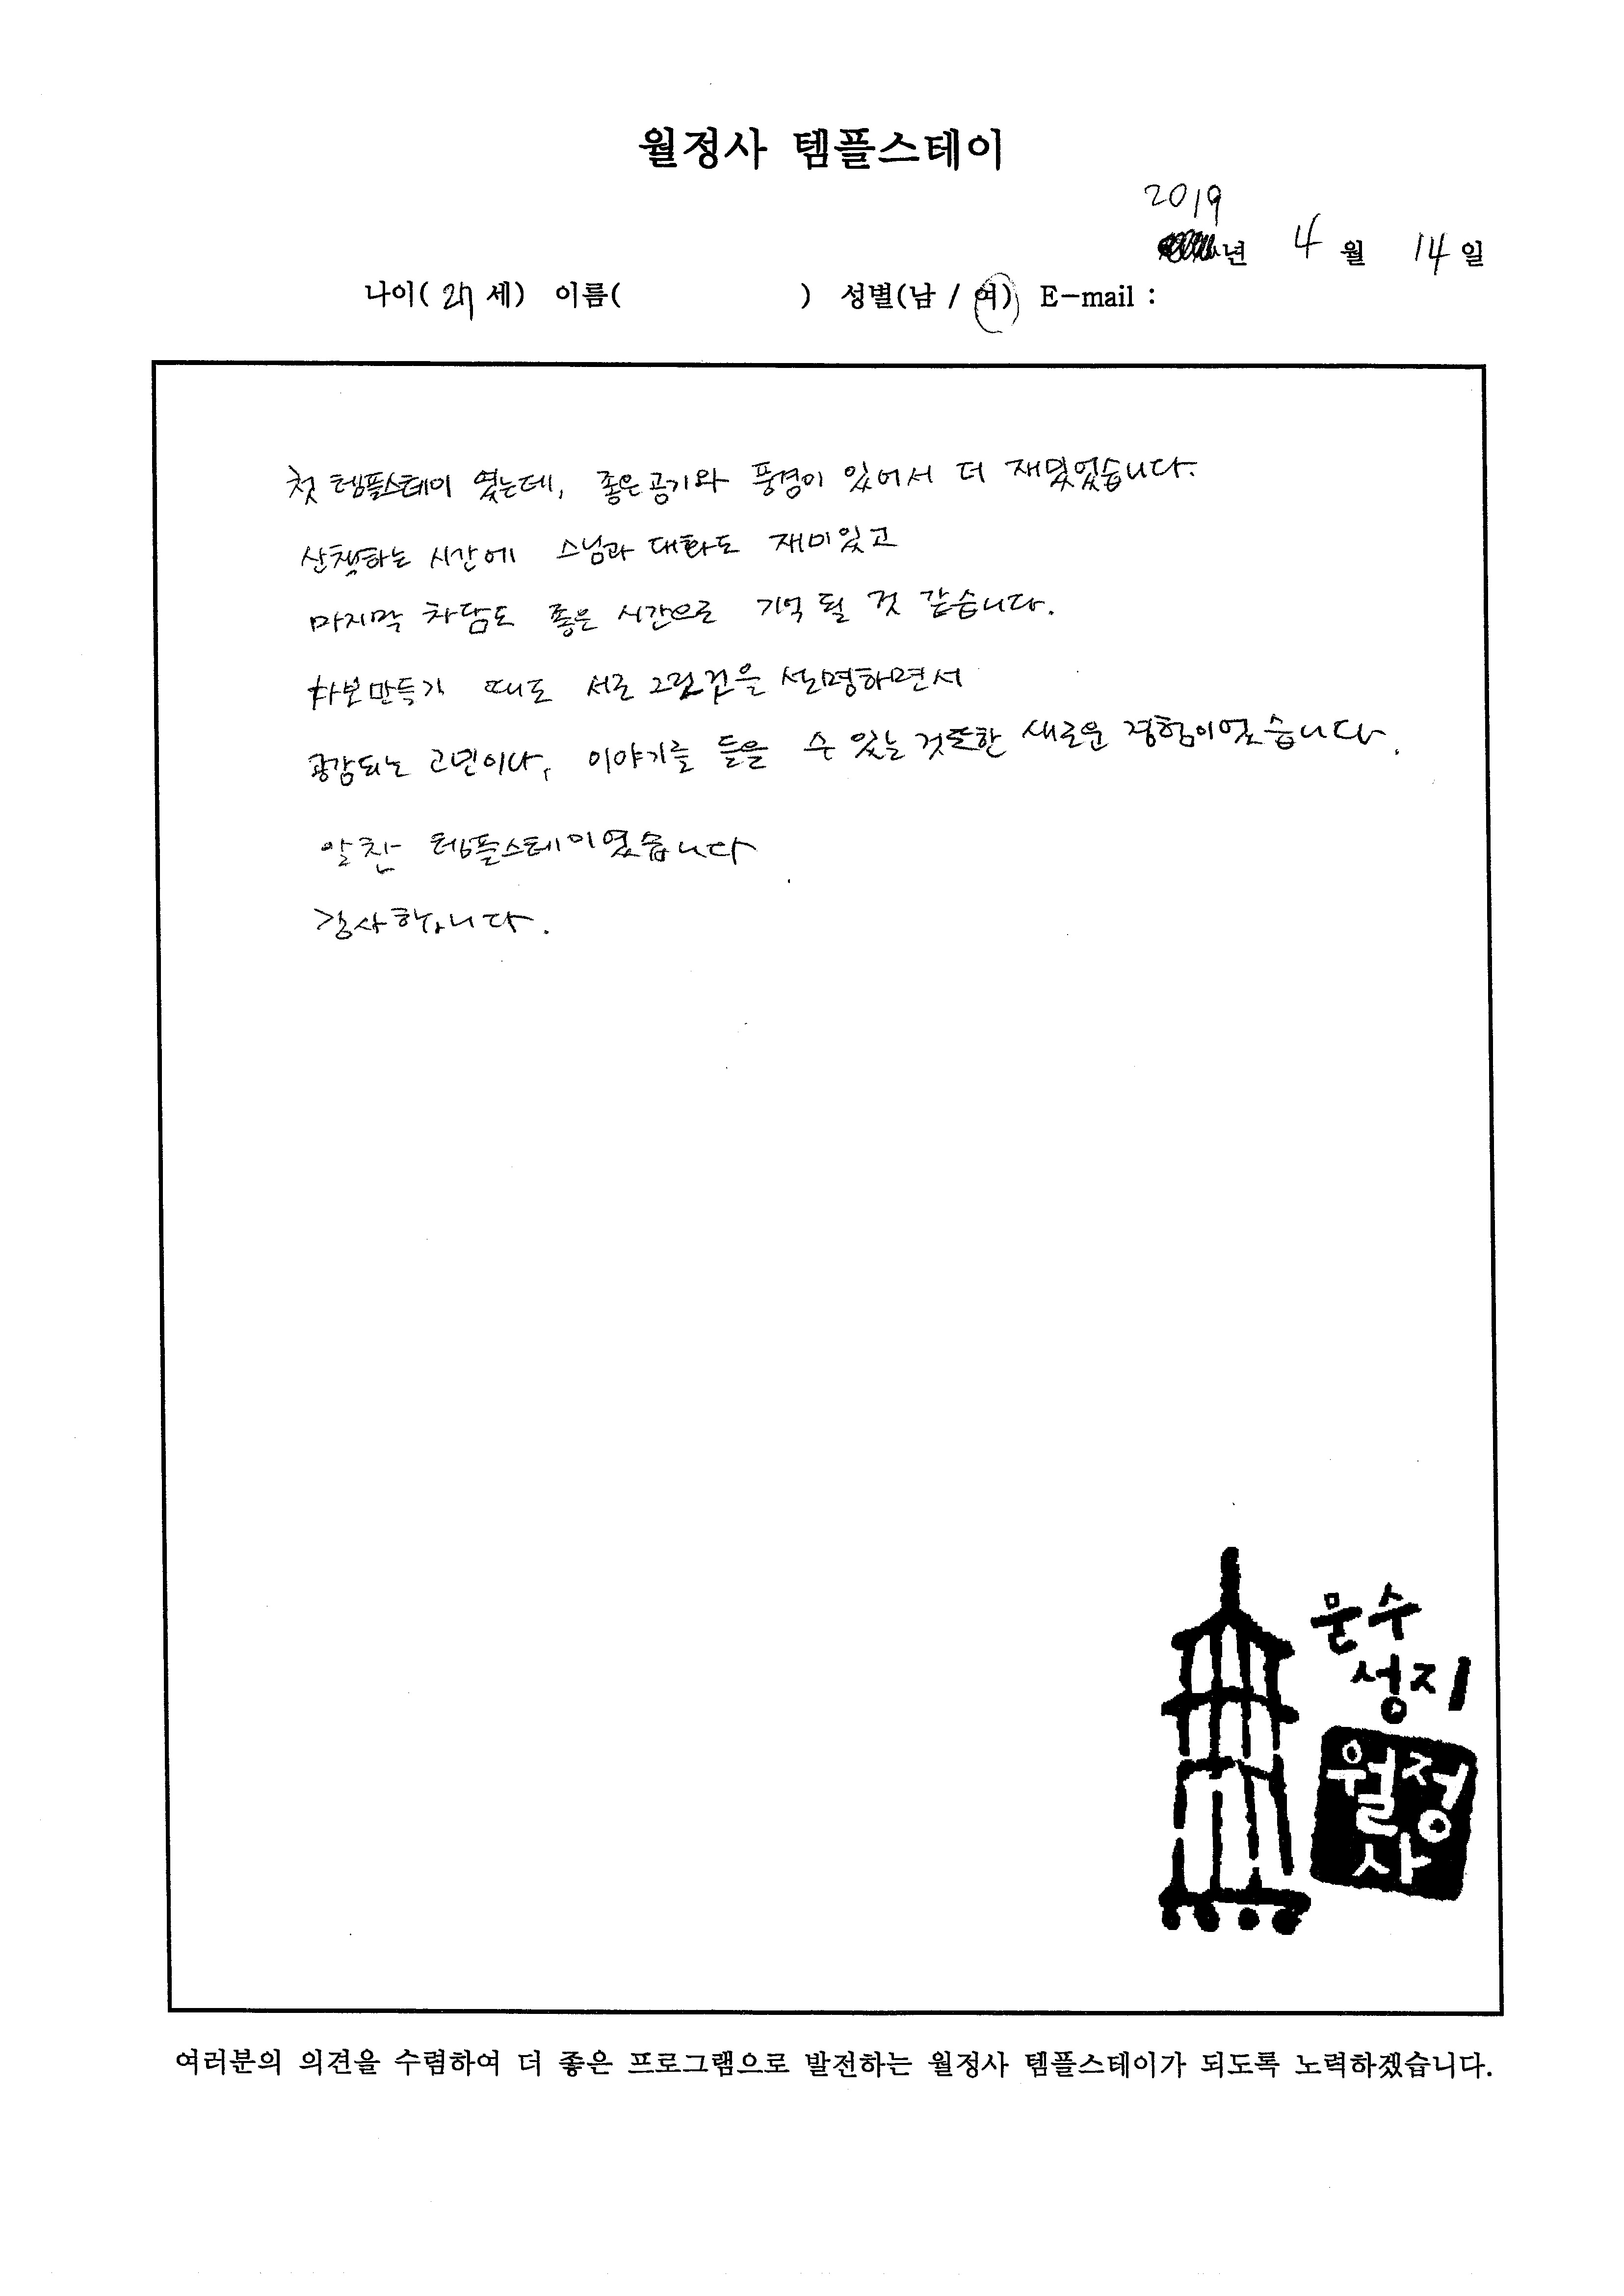 월정사 템플스테이
2019
년 4 월 14 일
나이( 27 세) 이름( ) 성별(남 / 여) E-mail :
첫 템플스테이 였는데, 좋은공기와 풍경이 있어서 더 재밌었습니다.
산책하는 시간에 스님과 대화도 재미있고
마지막 차담도 좋은 시간으로 기억 될 것 같습니다.
만들기 때도 서로 그린것을 설명하면서
공감되는 고민이나, 이야기를 들을 수 있는 것또한 새로운 경험이었습니다.
알찬 템플스테이였습니다
감사합니다.
문수
성지
월정
사
여러분의 의견을 수렴하여 더 좋은 프로그램으로 발전하는 월정사 템플스테이가 되도록 노력하겠습니다.